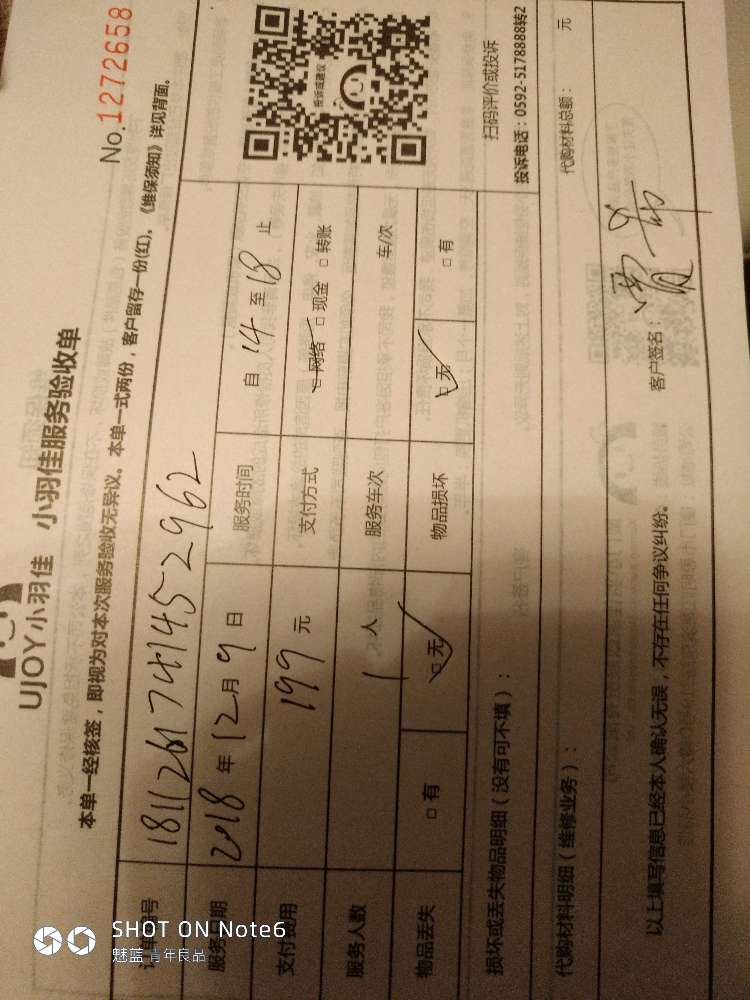 No.1272658
UJOY小羽佳 小羽佳服务验收单
本单一经核签，即视为对本次服务验收无异议。本单一式两份，客户留存一份(红)。《维保须知》详见背面。
订单编号 181126174145 2962
服务日期 2018年12月9日 服务时间 自14至18止
支付费用 199元 支付方式 □网络 □现金 □转账
服务人数 1人 服务车次 车/次
物品丢失 □有 □无 物品损坏 □无 □有
投诉或建议
扫码评价或投诉
投诉电话：0592-5178888转2
损坏或丢失物品明细（没有可不填）：
代购材料明细（维修业务）： 代购材料总额： 元
以上填写信息已经本人确认无误，不存在任何争议纠纷。 客户签名：
SHOT ON Note6
魅蓝 青年良品